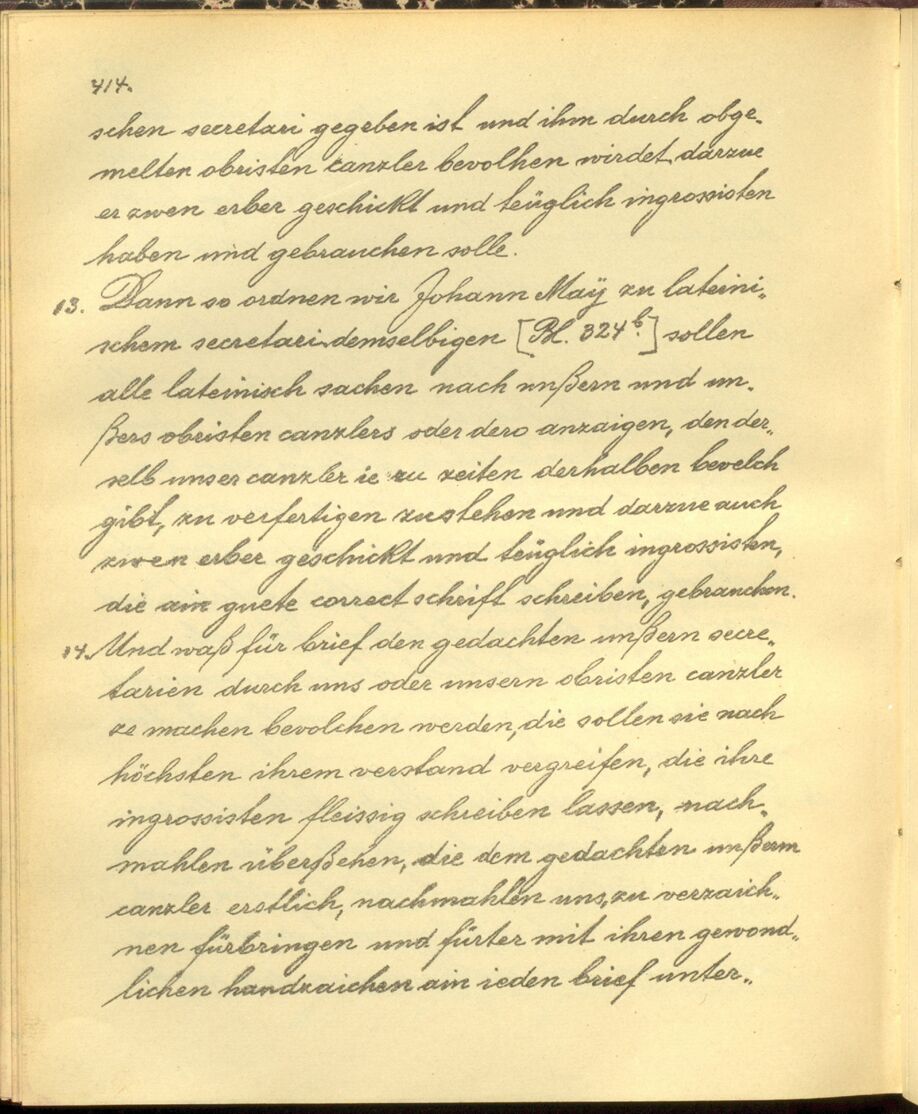 414.
schen secretari gegeben ist und ihm durch obge-
melten obristen canzler bevolhen wirdet, darzue
er zwen erber geschickt und teüglich ingrossisten
haben und gebrauchen solle.
13. Dann so ordnen wir Johann Maÿ zu lateini-
schem secretari, demselbigen [Bl. 324b.] sollen
alle lateinisch sachen nach unßern und un-
ßers obristen canzlers oder dero anzaigen, den der-
selb unser canzler ie zu zeiten derhalben bevelch
gibt, zu verfertigen zustehen und darzue auch
zwen erber geschickt und teüglich ingrossisten,
die ain guete correct schrift schreiben, gebrauchen.
14. Und waß für brief den gedachten unßern secre-
tarien durch uns oder unsern obristen canzler
ze machen bevolchen werden, die sollen sie nach
höchsten ihrem verstand vergreifen, die ihre
ingrossisten fleissig schreiben lassen, nach-
mahlen überßehen, die dem gedachten unßerm
canzler erstlich, nachmahlen uns, zu verzaich-
nen fürbringen und fürter mit ihren gewond-
lichen handzaichen ain ieden brief unter-